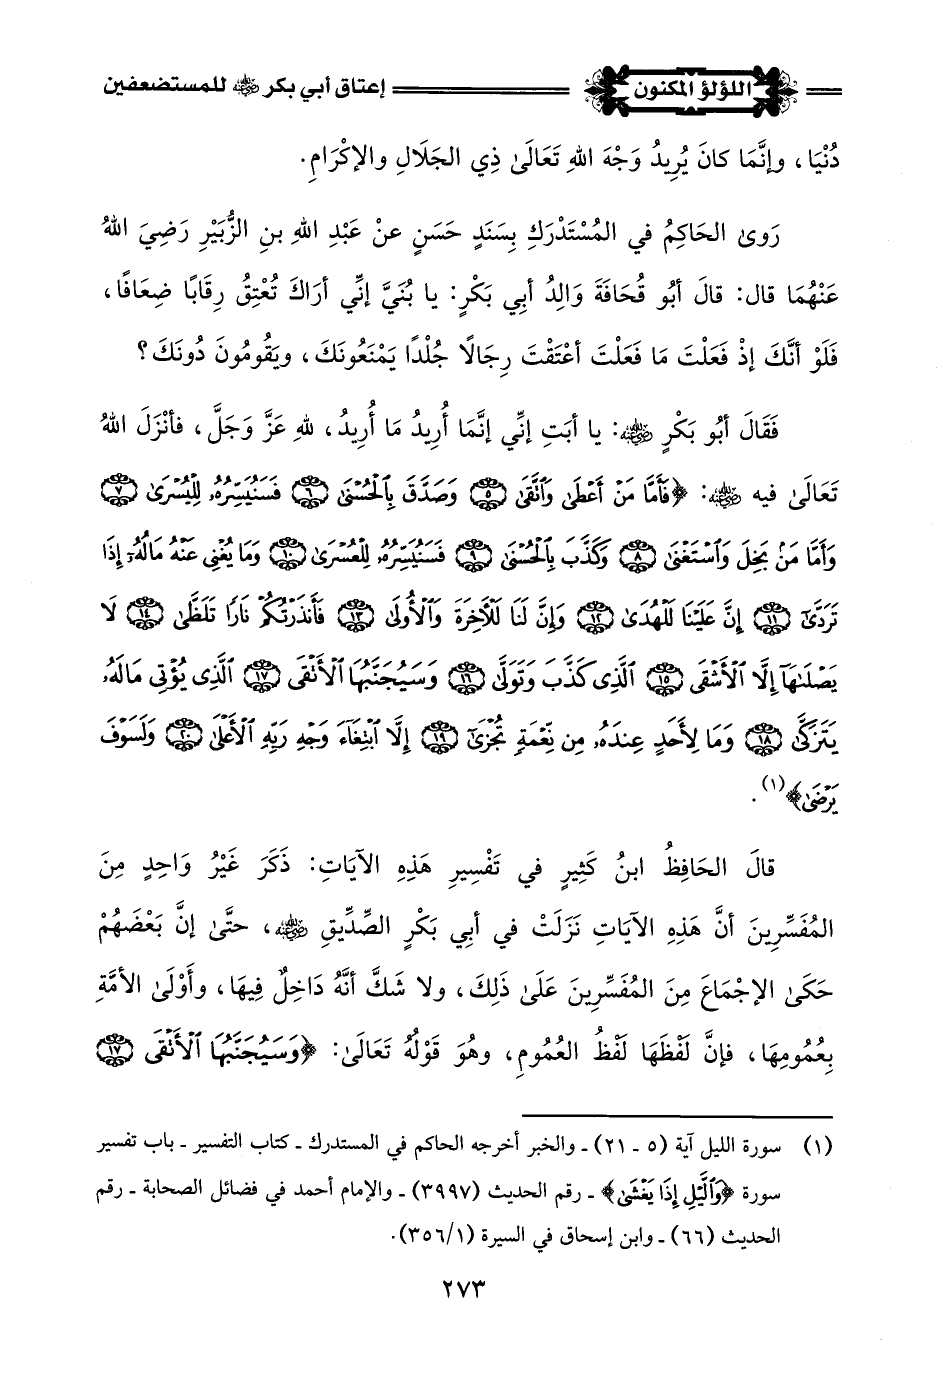 اللؤلؤ المكنون إعتاق أبي بكر ﵁ للمستضعفين
دُنْيَا، وإنَّمَا كانَ يُرِيدُ وَجْهَ اللهِ تَعَالَىٰ ذِي الجَلَالِ والإكْرَامِ.
رَوىٰ الحَاكِمُ في المُسْتَدْرَكِ بِسَنَدٍ حَسَنٍ عنْ عَبْدِ اللهِ بنِ الزُّبَيْرِ رَضِيَ اللهُ
عَنْهُمَا قال: قالَ أبُو قُحَافَةَ وَالِدُ أبِي بَكْرٍ: يا بُنَيَّ إنِّي أرَاكَ تُعْتِقُ رِقَابًا ضِعَافًا،
فَلَوْ أنَّكَ إذْ فَعَلْتَ مَا فَعَلْتَ أعْتَقْتَ رِجَالًا جُلْدًا يَمْنَعُونَكَ، ويَقُومُونَ دُونَكَ؟
فَقَالَ أبُو بَكْرٍ ﵁: يا أبَتِ إنِّي إنَّمَا أُرِيدُ مَا أُرِيدُ، للهِ عَزَّ وَجَلَّ، فأنْزَلَ اللهُ
تَعَالَىٰ فيه ﵁: ﴿فَأَمَّا مَنْ أَعْطَىٰ وَٱتَّقَىٰ ۝٥ وَصَدَّقَ بِٱلْحُسْنَىٰ ۝٦ فَسَنُيَسِّرُهُۥ لِلْيُسْرَىٰ ۝٧
وَأَمَّا مَنۢ بَخِلَ وَٱسْتَغْنَىٰ ۝٨ وَكَذَّبَ بِٱلْحُسْنَىٰ ۝٩ فَسَنُيَسِّرُهُۥ لِلْعُسْرَىٰ ۝١٠ وَمَا يُغْنِى عَنْهُ مَالُهُۥٓ إِذَا
تَرَدَّىٰٓ ۝١١ إِنَّ عَلَيْنَا لَلْهُدَىٰ ۝١٢ وَإِنَّ لَنَا لَلْآخِرَةَ وَٱلْأُولَىٰ ۝١٣ فَأَنذَرْتُكُمْ نَارًا تَلَظَّىٰ ۝١٤ لَا
يَصْلَىٰهَآ إِلَّا ٱلْأَشْقَى ۝١٥ ٱلَّذِى كَذَّبَ وَتَوَلَّىٰ ۝١٦ وَسَيُجَنَّبُهَا ٱلْأَتْقَى ۝١٧ ٱلَّذِى يُؤْتِى مَالَهُۥ
يَتَزَكَّىٰ ۝١٨ وَمَا لِأَحَدٍ عِندَهُۥ مِن نِّعْمَةٍ تُجْزَىٰٓ ۝١٩ إِلَّا ٱبْتِغَآءَ وَجْهِ رَبِّهِ ٱلْأَعْلَىٰ ۝٢٠ وَلَسَوْفَ
يَرْضَىٰ﴾(١).
قالَ الحَافِظُ ابنُ كَثِيرٍ في تَفْسِيرِ هَذِهِ الآيَاتِ: ذَكَرَ غَيْرُ وَاحِدٍ مِنَ
المُفَسِّرِينَ أنَّ هَذِهِ الآيَاتِ نَزَلَتْ في أبِي بَكْرٍ الصِّدِّيقِ ﵁، حتَّىٰ إنَّ بَعْضَهُمْ
حَكَىٰ الإجْمَاعَ مِنَ المُفَسِّرِينَ عَلَىٰ ذَلِكَ، ولا شَكَّ أنَّهُ دَاخِلٌ فِيهَا، وأَوْلَىٰ الأمَّةِ
بِعُمُومِهَا، فإنَّ لَفْظَهَا لَفْظُ العُمُومِ، وهُوَ قَوْلُهُ تَعَالَىٰ: ﴿وَسَيُجَنَّبُهَا ٱلْأَتْقَى ۝١٧
(١) سورة الليل آية (٥ - ٢١) - والخبر أخرجه الحاكم في المستدرك - كتاب التفسير - باب تفسير
سورة ﴿وَٱلَّيْلِ إِذَا يَغْشَىٰ﴾ - رقم الحديث (٣٩٩٧) - والإمام أحمد في فضائل الصحابة - رقم
الحديث (٦٦) - وابن إسحاق في السيرة (٣٥٦/١).
٢٧٣